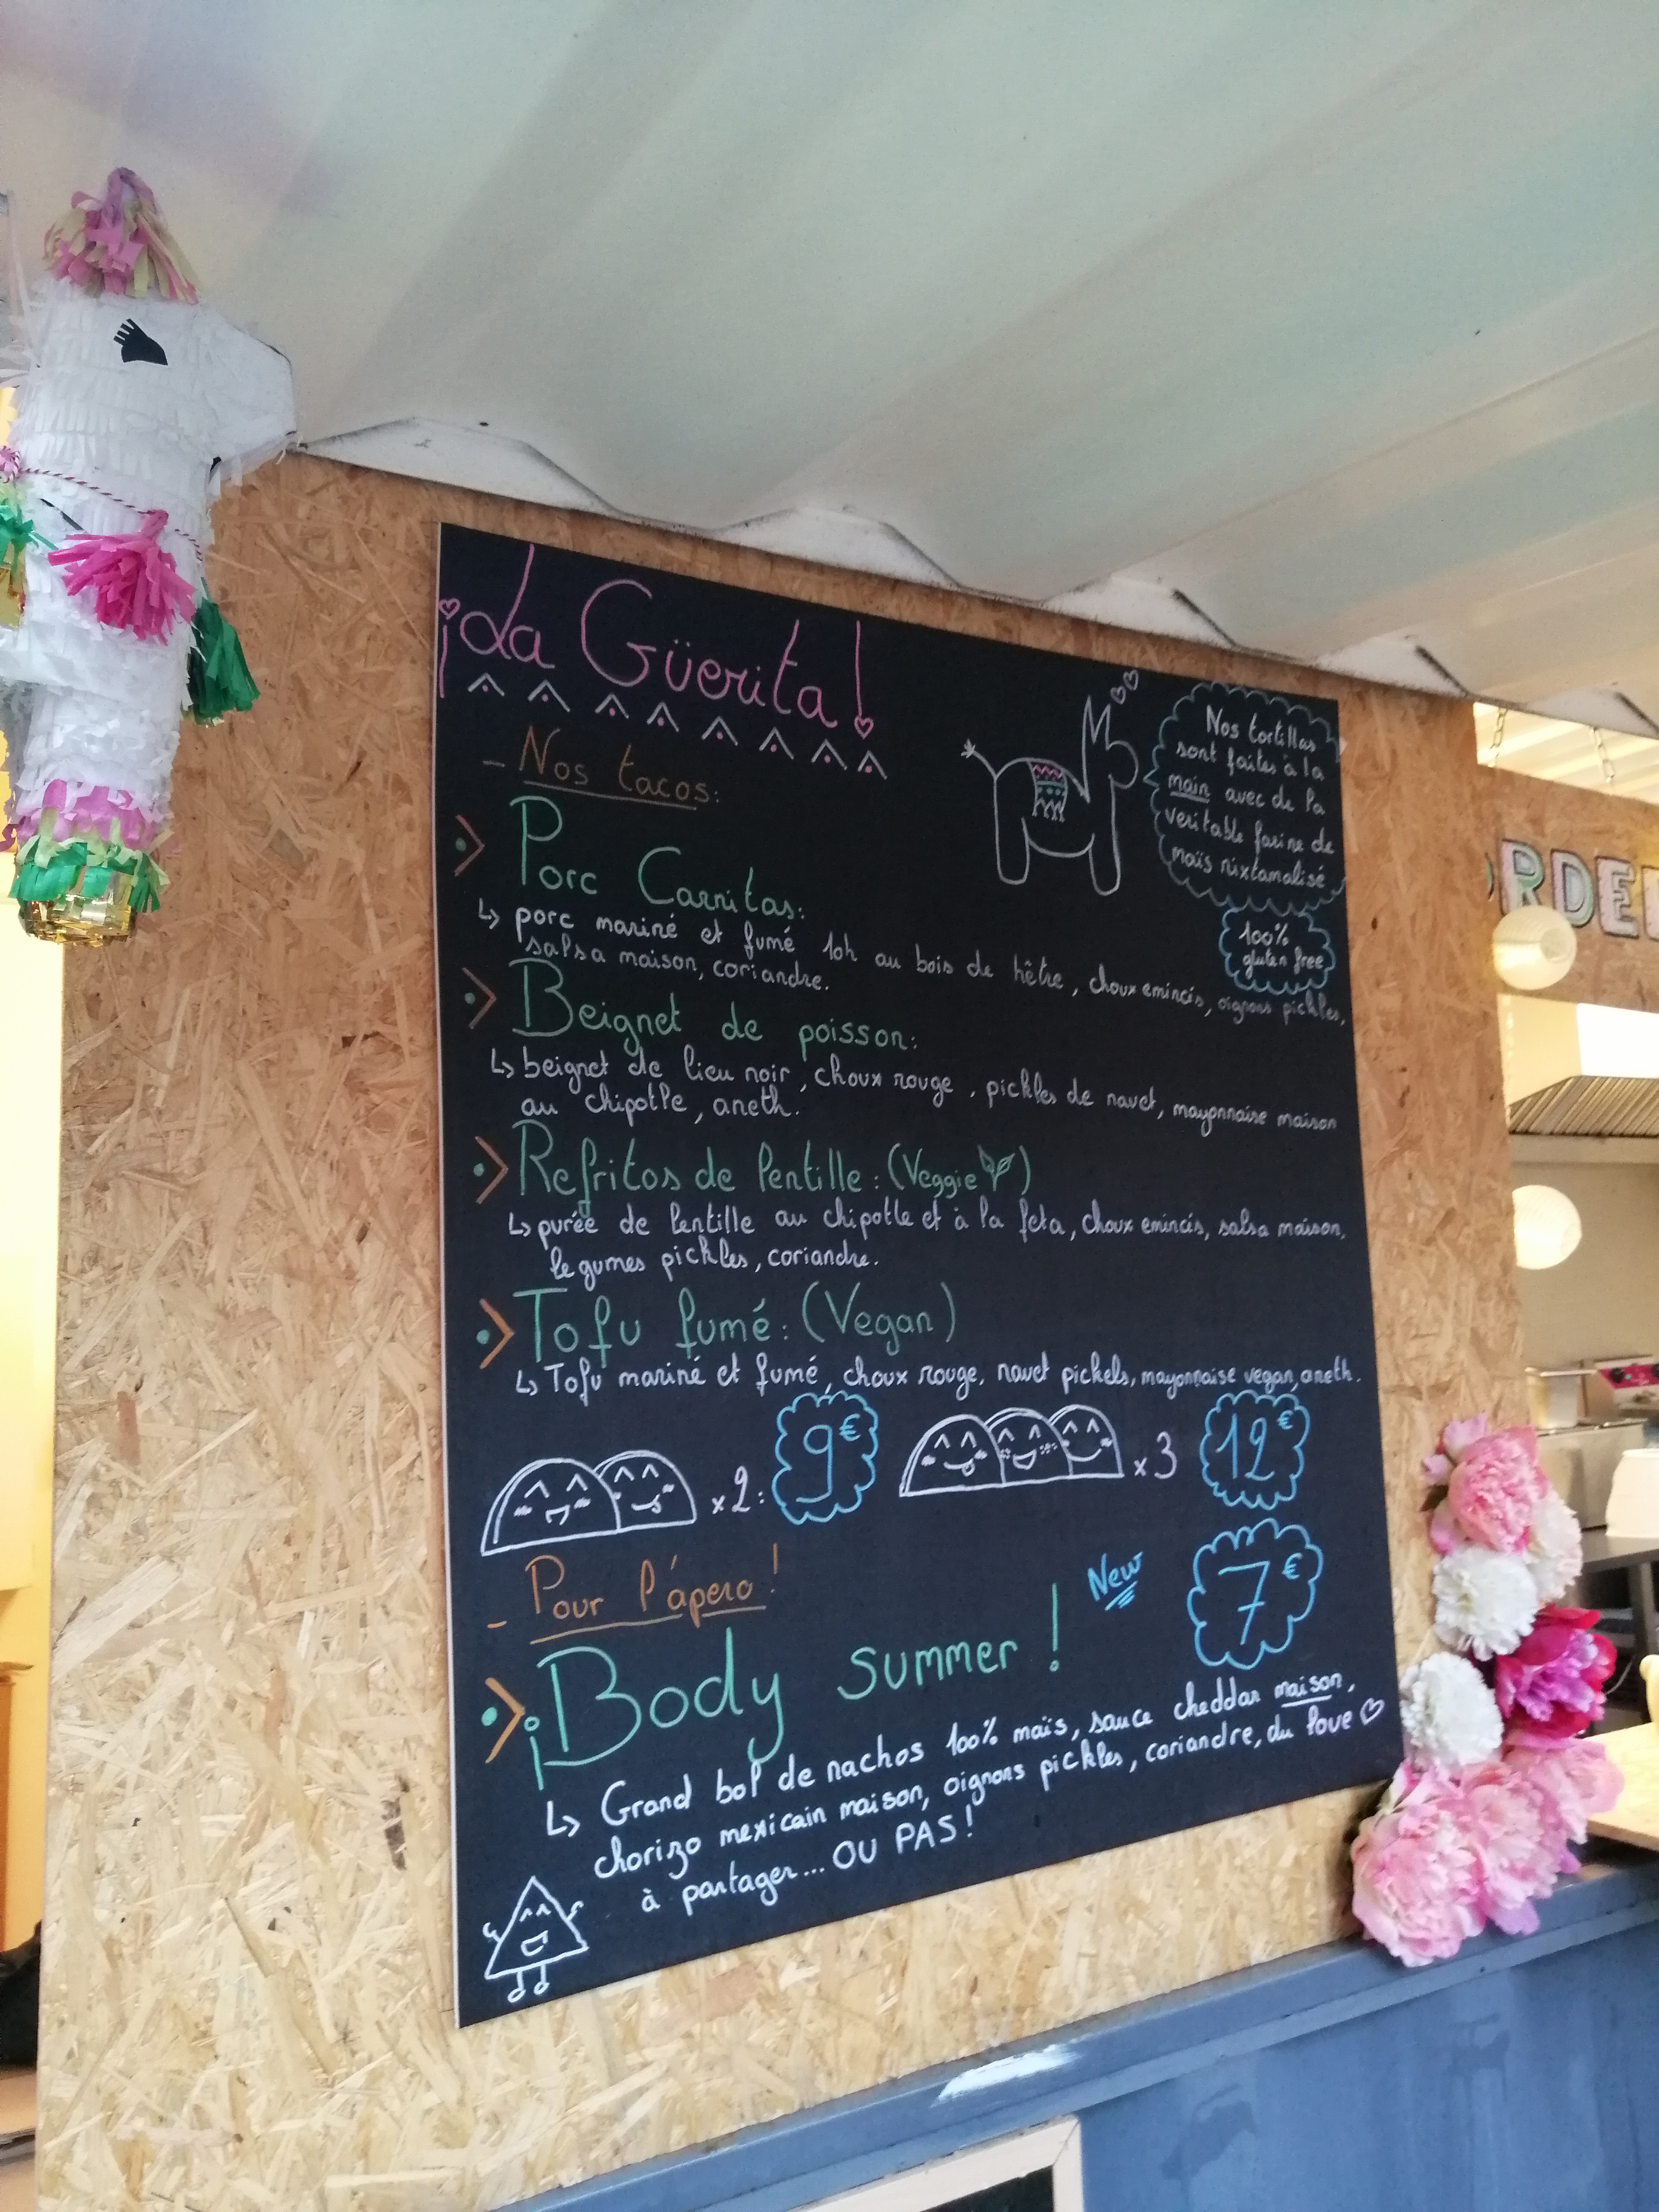 ¡La Güerita!
- Nos tacos:
Nos tortillas
sont faites à la
main avec de la
veritable farine de
maïs nixtamalisé
100%
gluten free
Porc Carnitas:
porc mariné et fumé 10h au bois de hêtre, choux emincés, oignons pickles,
salsa maison, coriandre.
Beignet de poisson:
beignet de lieu noir, choux rouge, pickles de navet, mayonnaise maison
au chipotle, aneth.
Refritos de lentille: (Veggie)
purée de lentille au chipotle et à la feta, choux emincés, salsa maison,
legumes pickles, coriandre.
Tofu fumé: (Vegan)
Tofu mariné et fumé, choux rouge, navet pickels, mayonnaise vegan, aneth.
x2: 9€ x3 12€
- Pour l'ápero!
¡Body summer! New 7€
Grand bol de nachos 100% maïs, sauce cheddar maison,
chorizo mexicain maison, oignons pickles, coriandre, du love ♡
à partager... OU PAS!